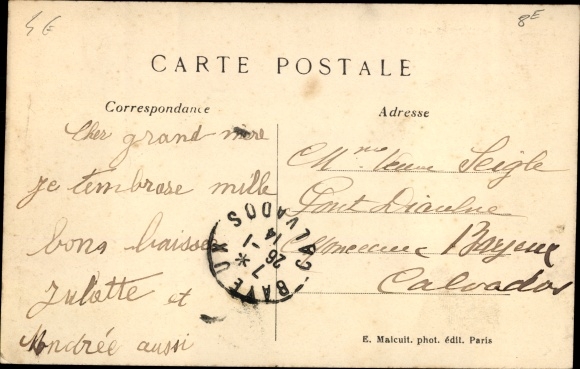 4 E
8E
CARTE POSTALE
Correspondance
Adresse
Cher grand mere
je tembrase mille
bons baisse
Juliette et
Andrée aussi
Mme Veuve Seigle
Pont Diaulne
Bayeux
Calvados
BAYEUX
7 *
26 -1
14
CALVADOS
E. Malcuit. phot. édit. Paris